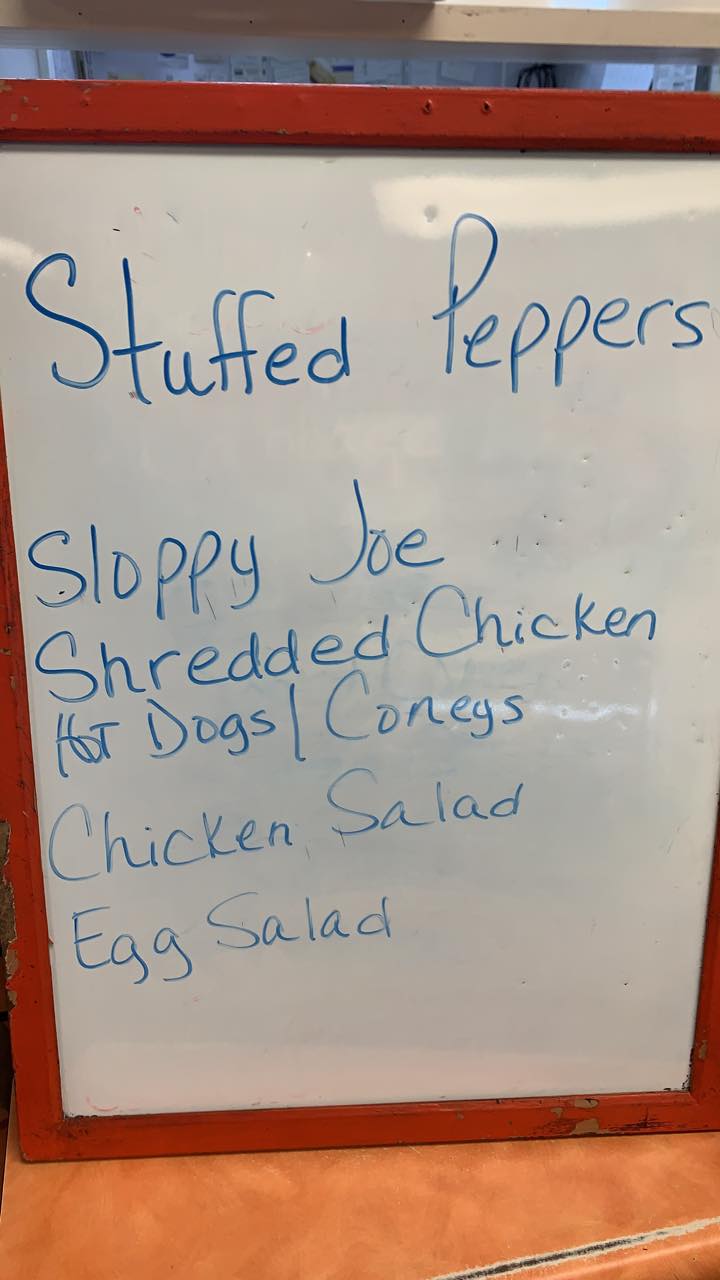 Stuffed Peppers
Sloppy Joe
Shredded Chicken
Hot Dogs/Coneys
Chicken Salad
Egg Salad